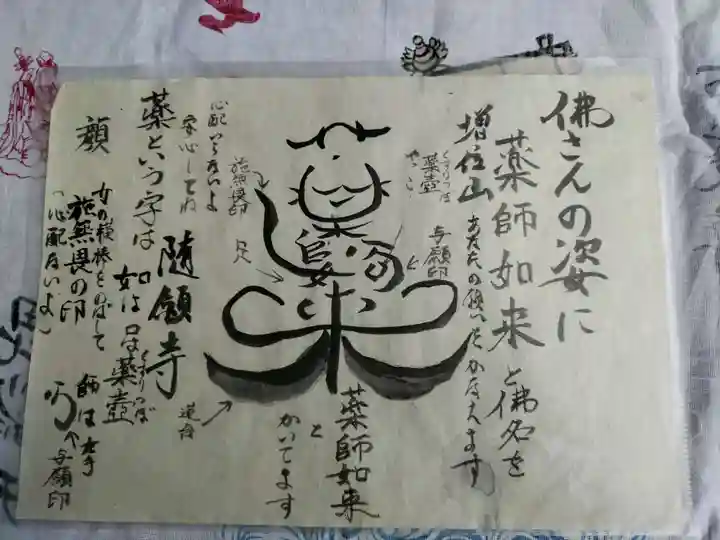 佛さんの姿に
薬師如来と佛名を
増位山
あなたの願いをかなえます
くすりつぼ
薬壺
やっこ
与願印
施無畏印
足
心配いらないよ
安心してね
随願寺
薬という字は
顔
如は
口は薬壺
くすりつぼ
女の横棒をのばして
施無畏の印
(心配ないよ)
師は右手
与願印
蓮台
薬師如来
と
かいてます